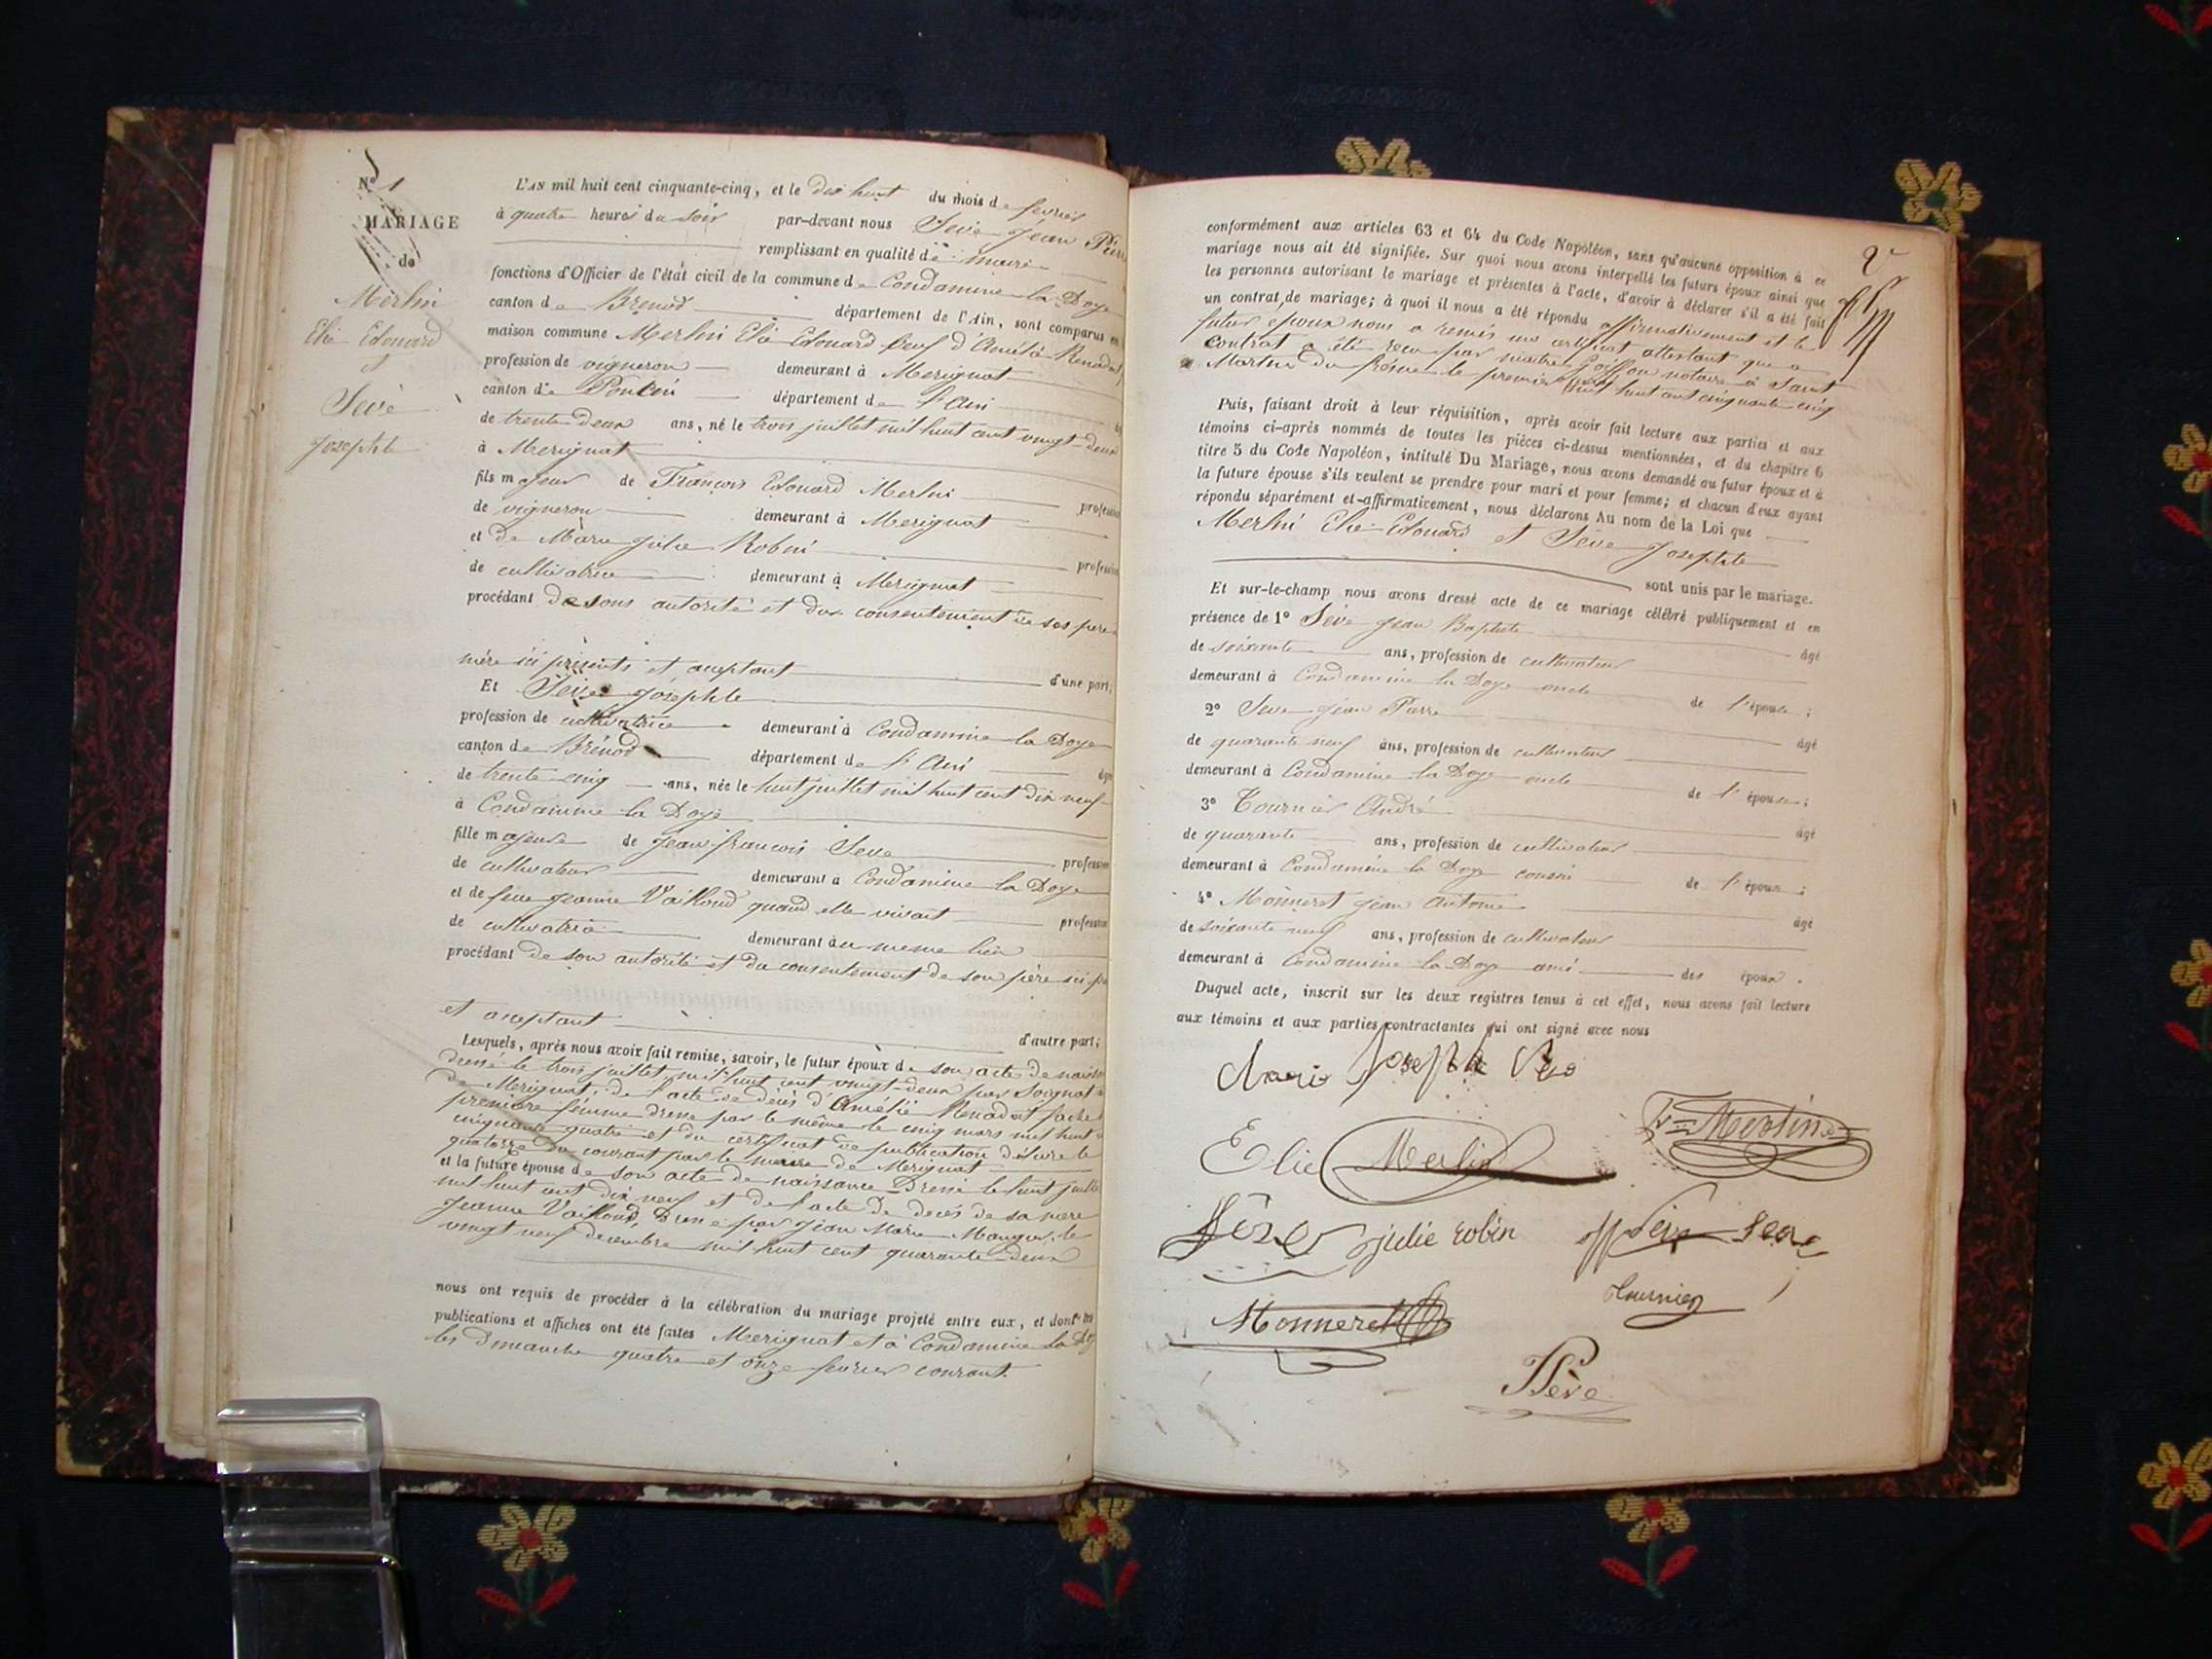 N° 1
MARIAGE
de
Merlin
Elie Edouard
et
Sève
Josephte
L'AN mil huit cent cinquante-cinq, et le dix huit du mois de fevrier
à quatre heures du soir par-devant nous Sève Jean Pierre
remplissant en qualité de maire
fonctions d'Officier de l'état civil de la commune de Condamine la Doye
canton de Brenod département de l'Ain, sont comparus en
maison commune Merlin Elie Edouard veuf d'Amélie Renadat
profession de vigneron demeurant à Merignat
canton de Poncin département de l'Ain
de trente deux ans, né le trois juillet mil huit cent vingt-deux
à Merignat
fils majeur de François Edouard Merlin profession
de vigneron demeurant à Merignat
et de Marie Julie Robin profession
de cultivatrice demeurant à Merignat
procédant de son autorité et du consentement de ses père
mère ici présents et aceptant d'une part;
Et Sève Josephte
profession de cultivatrice demeurant à Condamine la Doye
canton de Brénod département de l'Ain âgée
de trente cinq ans, née le huit juillet mil huit cent dix neuf
à Condamine la Doye
fille majeure de Jean françois Seve profession
de cultivateur demeurant à Condamine la Doye
et de feue Jeanne Vailloud quand elle vivait profession
de cultivatrice demeurant au meme lieu
procédant de son autorité et du consentement de son père ici
et aceptant d'autre part;
Lesquels, après nous avoir fait remise, savoir, le futur époux de son acte de
dressé le trois juillet mil huit cent vingt-deux par
de Merignat; de l'acte de décès d'Amélie Renadat
première femme dressé par le même le cinq mars mil huit
cinquante quatre et du certificat de publication délivré le
quatorze du courant par le maire de Merignat
et la future épouse de son acte de naissance Dressé le huit juillet
mil huit cent dix neuf et de l'acte de décès de sa mere
Jeanne Vailloud, Dressé par Jean Marie le
vingt neuf decembre mil huit cent quarante-deux
nous ont requis de procéder à la célébration du mariage projeté entre eux, et dont les
publications et affiches ont été faites Merignat et à Condamine la Doye
les Dimanche quatre et onze fevrier courant.
2
conformément aux articles 63 et 64 du Code Napoléon, sans qu'aucune opposition à ce
mariage nous ait été signifiée. Sur quoi nous avons interpellé les futurs époux ainsi que
les personnes autorisant le mariage et présentes à l'acte, d'avoir à déclarer s'il a été fait
un contrat de mariage; à quoi il nous a été répondu affirmativement et le
futur époux nous a remis un certificat attestant que
contrat a été reçu par maitre Goiffon notaire à Saint
Martin du frêne le premier mil huit cent cinquante cinq
Puis, faisant droit à leur réquisition, après avoir fait lecture aux parties et aux
témoins ci-après nommés de toutes les pièces ci-dessus mentionnées, et du chapitre 6
titre 5 du Code Napoléon, intitulé Du Mariage, nous avons demandé au futur époux et à
la future épouse s'ils veulent se prendre pour mari et pour femme; et chacun d'eux ayant
répondu séparément et affirmativement, nous déclarons Au nom de la Loi que
Merlin Elie Edouard et Sève Josephte
sont unis par le mariage.
Et sur-le-champ nous avons dressé acte de ce mariage célébré publiquement et en
présence de 1° Sève Jean Baptiste âgé
de soixante ans, profession de cultivateur
demeurant à Condamine la Doye oncle de l'épouse;
2° Seve Jean Pierre âgé
de quarante neuf ans, profession de cultivateur
demeurant à Condamine la Doye oncle de l'épouse;
3° Tournier André âgé
de quarante ans, profession de cultivateur
demeurant à Condamine la Doye cousin de l'épouse;
4° Monneret Jean Antoine âgé
de soixante neuf ans, profession de cultivateur
demeurant à Condamine la Doye ami des époux.
Duquel acte, inscrit sur les deux registres tenus à cet effet, nous avons fait lecture
aux témoins et aux parties contractantes qui ont signé avec nous
Marie Josephte Sève
Elie Merlin Merlin
Sève julie robin Seve Seve
Monneret Tournier
Sève